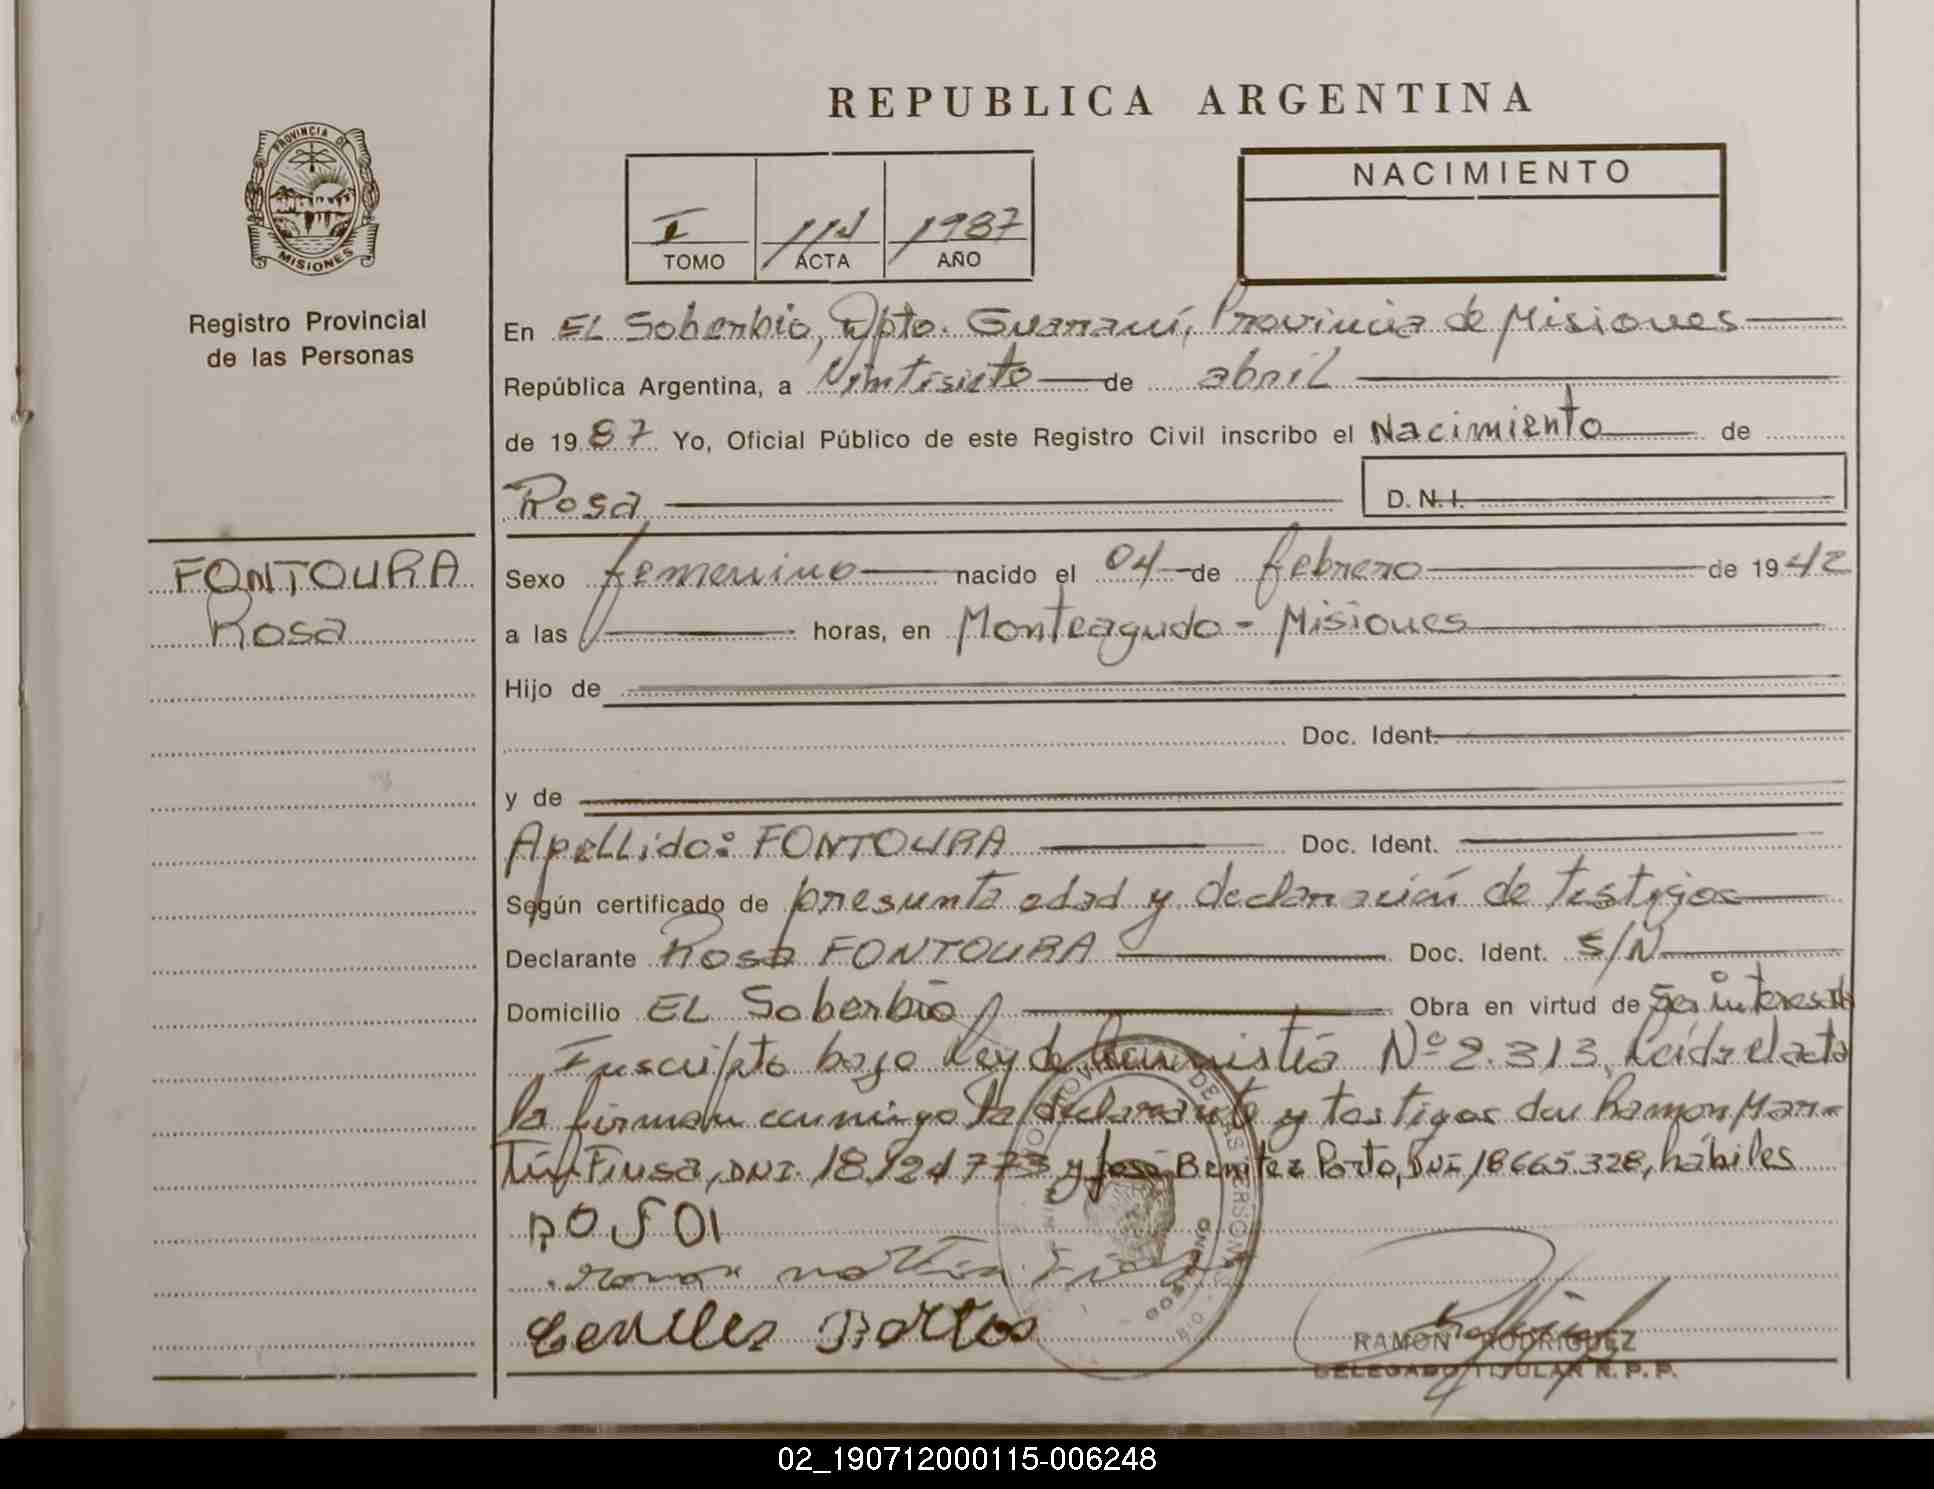 REPUBLICA ARGENTINA
PROVINCIA DE
MISIONES
Registro Provincial
de las Personas
I
TOMO
ACTA
1987
AÑO
NACIMIENTO
En EL Soberbio, Dpto. Guaraní, Provincia de Misiones
República Argentina, a de abril
de 1987 Yo, Oficial Público de este Registro Civil inscribo el Nacimiento de
Rosa D.N.I.
FONTOURA
Rosa
Sexo femenino nacido el 04 de febrero de 1942
a las horas, en Monteagudo - Misiones
Hijo de
Doc. Ident.
y de
Apellido: FONTOURA Doc. Ident.
Según certificado de presunta edad y declaración de testigos
Declarante Rosa FONTOURA Doc. Ident. S/N
Domicilio EL Soberbio Obra en virtud de Ser
bajo Ley de Nº 2.313, Leída el acta
la firman conmigo la declarante y testigos don Ramon Mar-
tin DNI. y José Benitez Porto, DNI 18665.328, hábiles
RAMON RODRIGUEZ
DELEGADO TITULAR R.P.P.
02_190712000115-006248